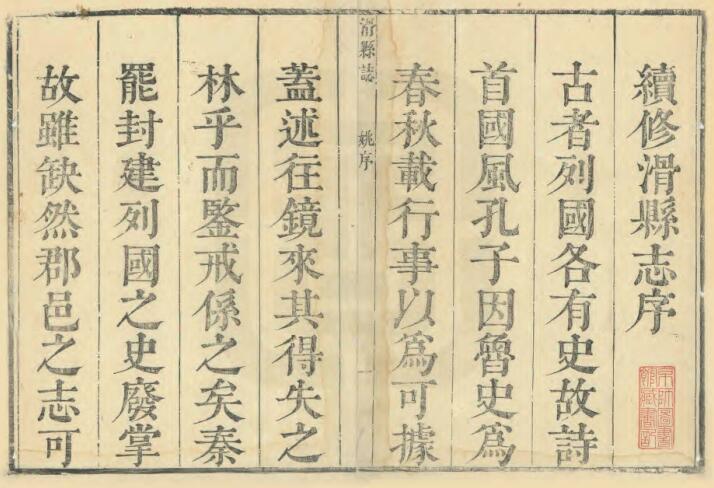 續修滑縣志序
古者列國各有史故詩
首國風孔子因魯史爲
春秋載行事以爲可據
滑縣誌
姚序
蓋述往鏡來其得失之
林乎而鑒戒係之矣秦
罷封建列國之史廢掌
故雖缺然郡邑之志可